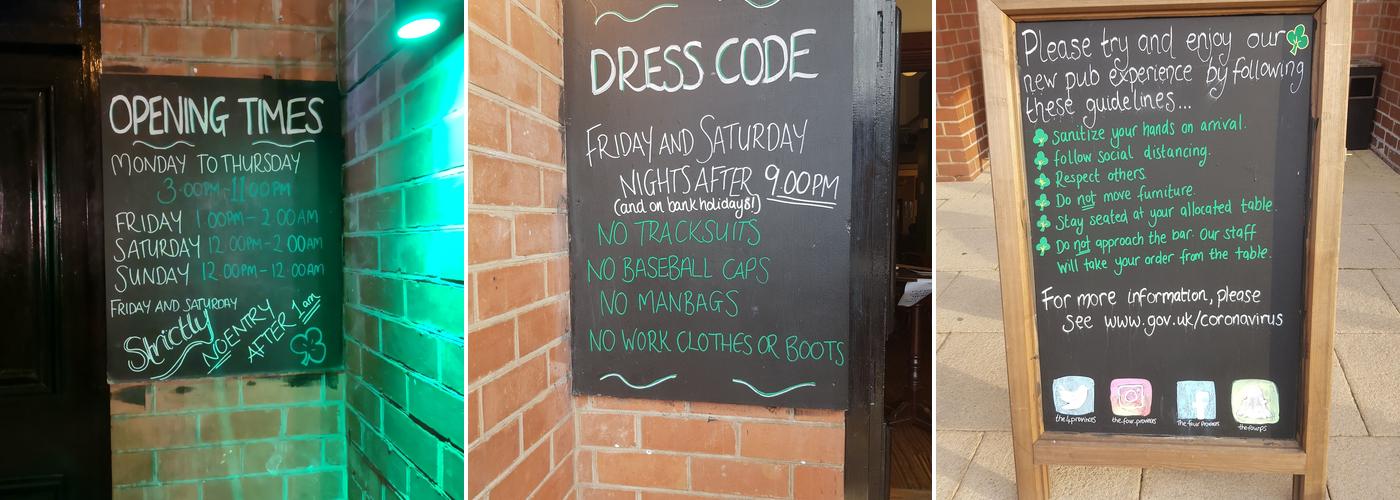 OPENING TIMES
MONDAY TO THURSDAY
3.00PM-11.00PM
FRIDAY 1.00PM-2.00AM
SATURDAY 12.00PM-2.00AM
SUNDAY 12.00PM-12.00AM
FRIDAY AND SATURDAY
Strictly NO ENTRY AFTER 1am
DRESS CODE
FRIDAY AND SATURDAY
NIGHTS AFTER 9.00PM
(and on bank holidays!)
NO TRACKSUITS
NO BASEBALL CAPS
NO MANBAGS
NO WORK CLOTHES OR BOOTS
Please try and enjoy our
new pub experience by following
these guidelines...
Sanitize your hands on arrival.
follow social distancing.
Respect others.
Do not move furniture.
Stay seated at your allocated table.
Do not approach the bar. Our staff
will take your order from the table.
For more information, please
see www.gov.uk/coronavirus
the4provinces the.four.provinces The Four Provinces thefourps